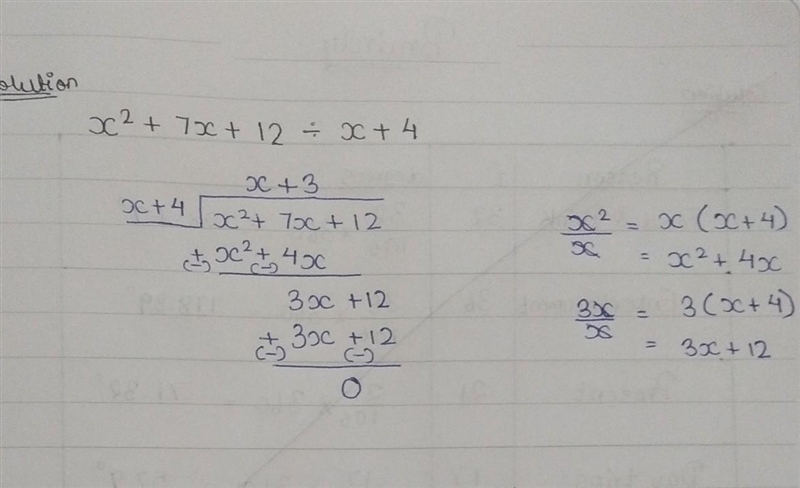 olution
x² + 7x + 12 ÷ x + 4
x + 3
x + 4 x² + 7x + 12
+ x² + 4x
(-) (-)
3x + 12
+ 3x + 12
(-) (-)
0
x²/x = x (x + 4)
= x² + 4x
3x/x = 3 (x + 4)
= 3x + 12